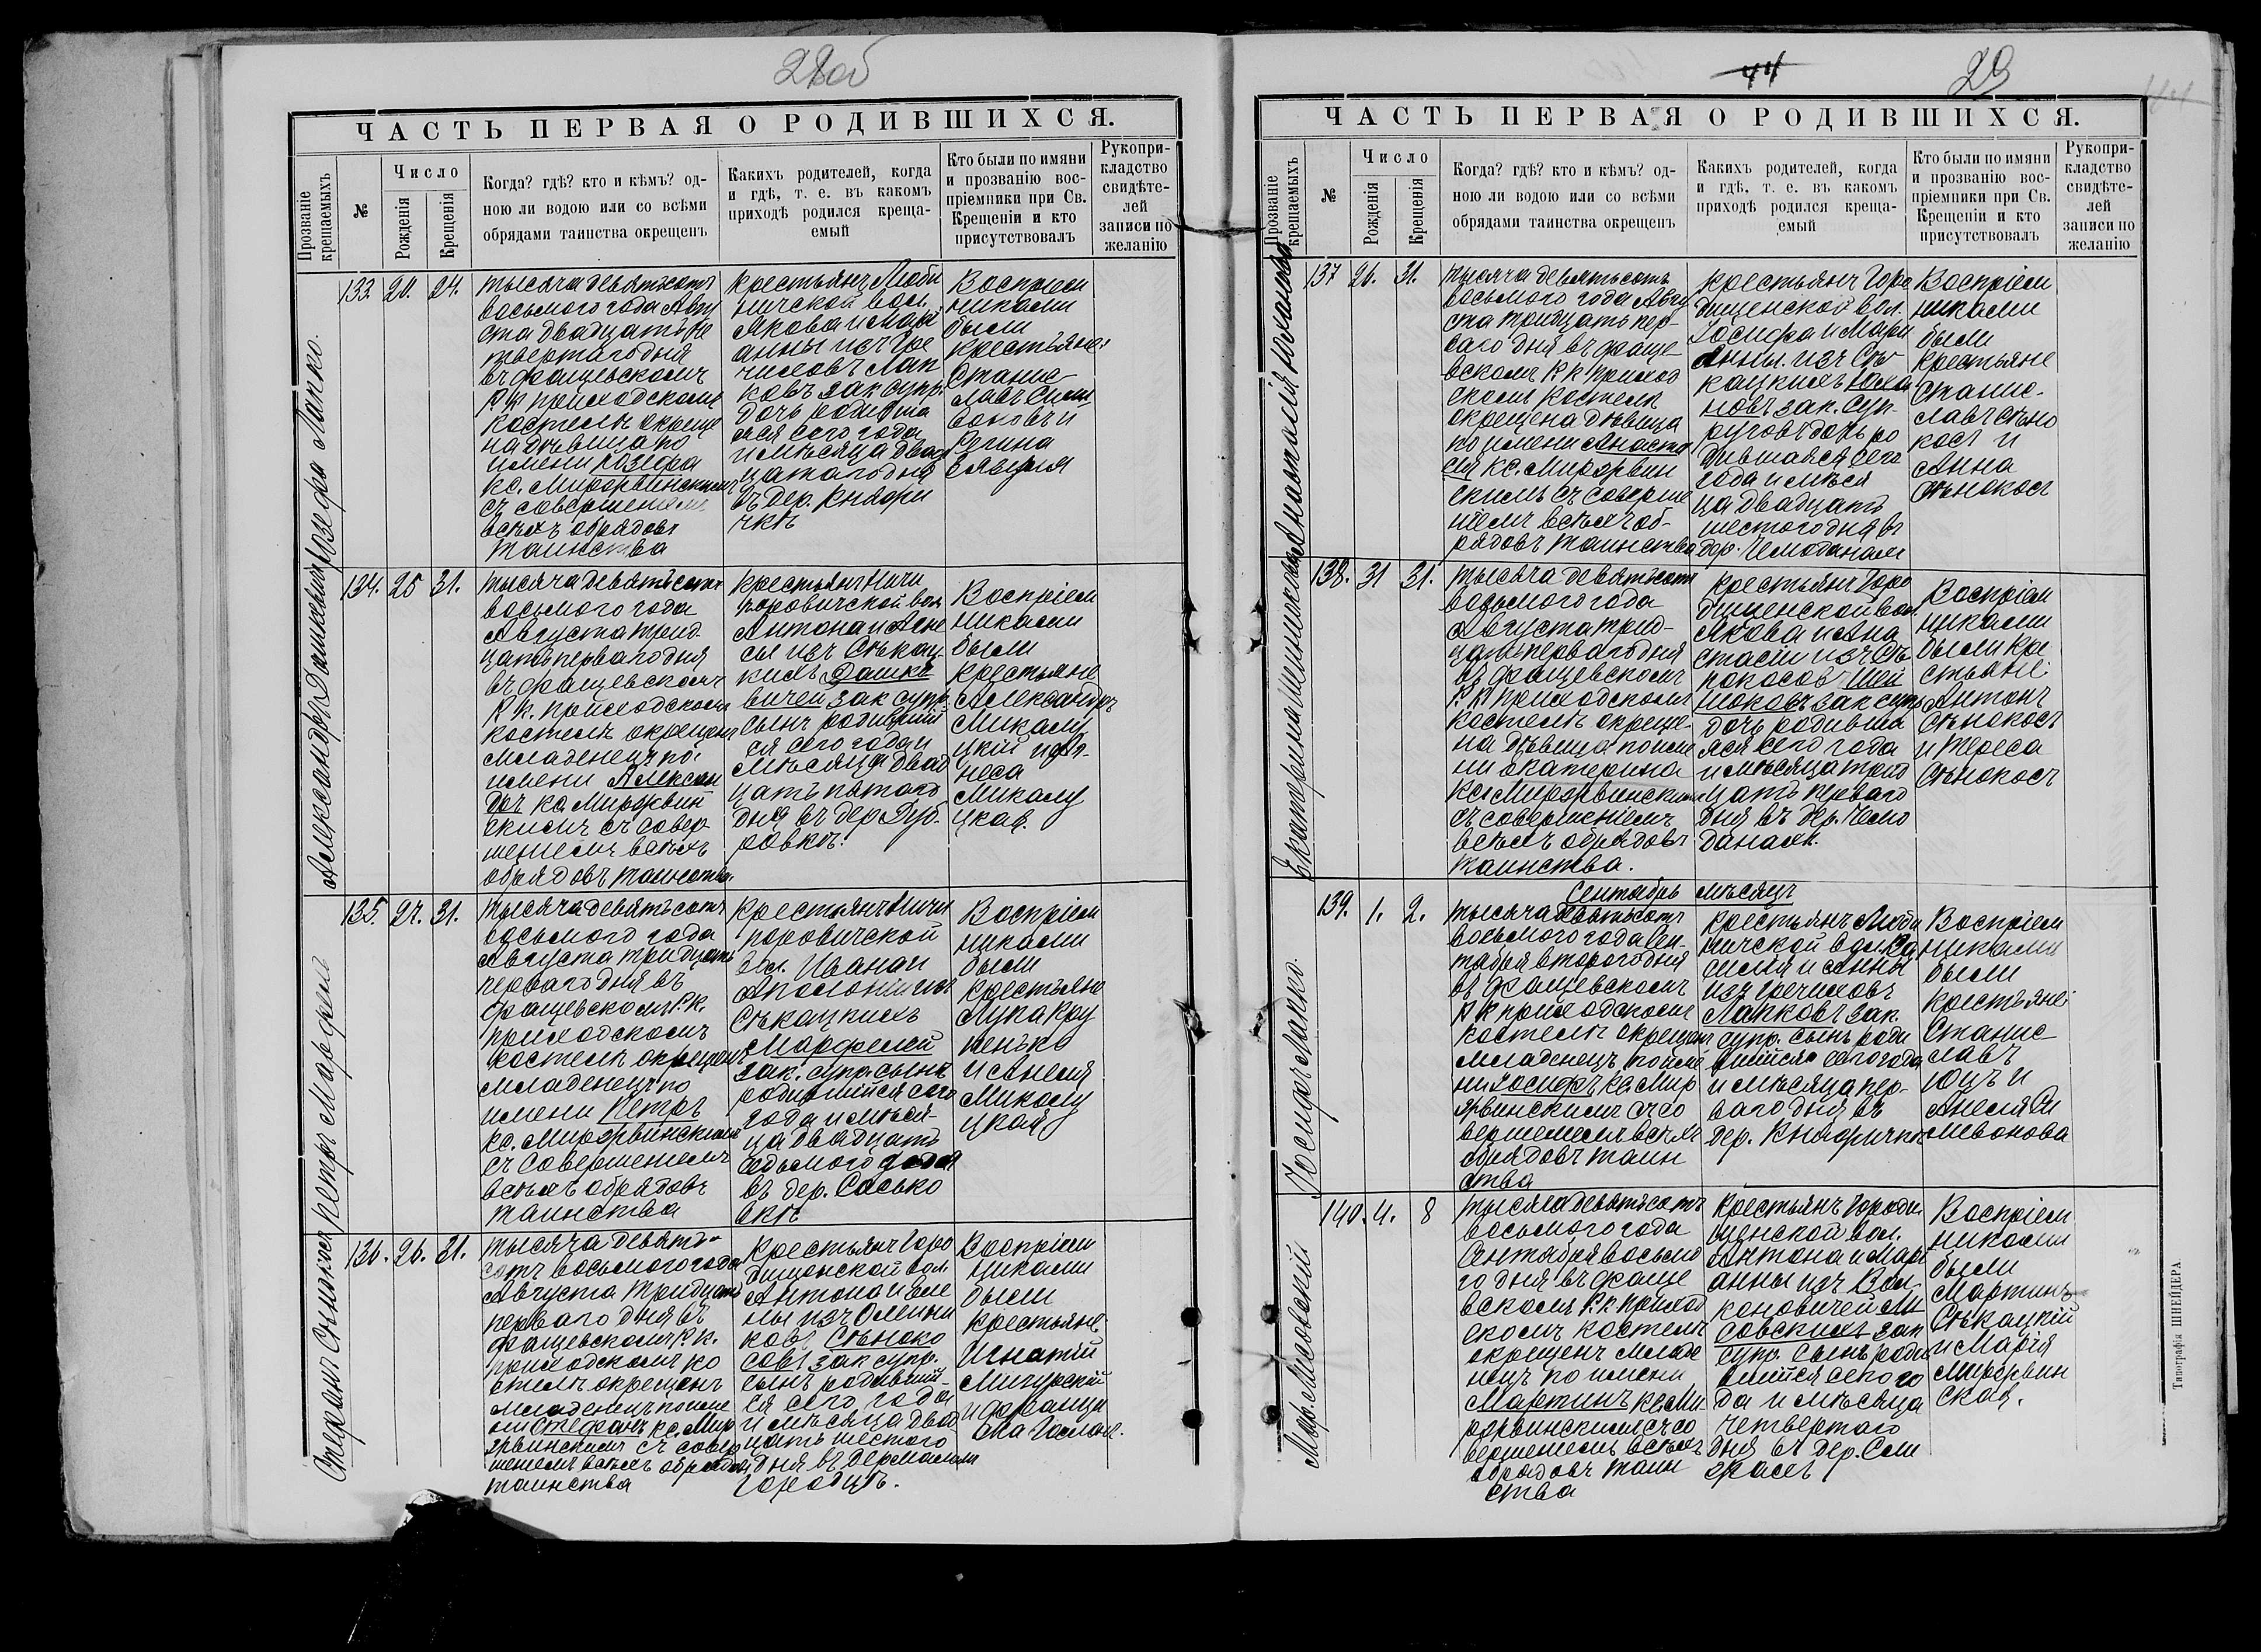 28об
ЧАСТЬ ПЕРВАЯ О РОДИВШИХСЯ.
Прозваніе крещаемыхъ
№
Число
Рожденія
Крещенія
Когда? гдѣ? кто и кѣмъ? од-
ною ли водою или со всѣми
обрядами таинства окрещенъ
Каких​ъ родителей, когда
и гдѣ, т. е. въ какомъ
приходѣ родился креща-
емый
Кто были по имяни
и прозванію вос-
пріемники при Св.
Крещеніи и кто
присутствовалъ
Рукопри-
кладство
свидѣте-
лей
записи по
желанію
Розефа Лапко.
133. 20. 24.
тысяча девятьсотъ
восьмого года Авгу
ста двадцать че
твертаго дня
въ Фащевскомъ
Р К приходскомъ
костелѣ окреще
на дѣвица по
имени Розефа
кс. Мирорвинскимъ
съ совершеніемъ
всѣхъ обрядовъ
таинства
крестьянъ Люби
ничской вол.
Якова и Мар
анны изъ Гре
чиховъ Лап
ковъ зак супр.
дочь родивша
яся сего года
и мѣсяца двад
цатаго дня
въ дер. Княри
чкѣ
Воспріем
никами
были
крестьяне:
Станис
лавъ Сили
воновъ и
Регина
Александръ Дашкевичъ
134. 25 31.
тысяча девятьсотъ
восьмого года
Августа трид
цать перваго дня
въ Фащевскомъ
Р К. приходскомъ
костелѣ окрещенъ
младенецъ по
имени Алексан
дръ кс. Мирорвин
скимъ съ совер
шеніемъ всѣхъ
обрядовъ таинства.
крестьянъ Ничи
поровичской вол
Антона и Агне
сы изъ Стѣкац
кихъ Дашке
вичей зак супр.
сынъ родивший
ся сего года и
мѣсяца двад
цать пятаго
дня въ дер. Дуб.
ровкѣ.
Воспріем
никами
были
крестьяне
Александръ
Микалу
цкій и Аг-
неса
Микалу
цкая.
Петръ Марфелй
135. 27. 31.
тысяча девятьсотъ
восьмого года
Августа тридцать
перваго дня въ
Фащевскомъ Р. К.
приходскомъ
костелѣ окрещенъ
младенецъ по
имени Петръ
кс. Мирорвинскимъ
съ совершеніемъ
всѣхъ обрядовъ
таинства
крестьянъ Ничи
поровичской
вол. Ивана и
Аполоніи изъ
Стѣкацкихъ
Марфелей
зак. супр. сынъ
родившійся сего
года и мѣся-
ца двадцать
седьмого
въ дер. Сасько
вкѣ
Воспріем
никами
были
крестьяне
Лука Кру
пенько
и Анеля
Микалу
цкая
Стефанъ Сѣнокосъ
136. 26. 31.
тысяча девять-
сотъ восьмого года
Августа тридцать
перваго дня въ
Фащевскомъ Р. К.
приходскомъ ко
стелѣ окрещенъ
младенецъ по име
ни Стефанъ кс. Мир
орвинскимъ съ совер
шеніемъ всѣхъ обрядовъ
таинства
крестьянъ Горо
дищенской вол.
Антона и Еле
ны изъ Олешки
ковъ Сѣноко
совъ зак супр.
сынъ родивший-
ся сего года
и мѣсяца двад
цать шестого
дня въ дер Маломъ
городцѣ.
Воспріем
никами
были
крестьяне
Игнатій
Мигурскій
и Францы
ска
44
29
ЧАСТЬ ПЕРВАЯ О РОДИВШИХСЯ.
Прозваніе крещаемыхъ
№
Число
Рожденія
Крещенія
Когда? гдѣ? кто и кѣмъ? од-
ною ли водою или со всѣми
обрядами таинства окрещенъ
Какихъ родителей, когда
и гдѣ, т. е. въ какомъ
приходѣ родился креща-
емый
Кто были по имяни
и прозванію вос-
пріемники при Св.
Крещеніи и кто
присутствовалъ
Рукопри-
кладство
свидѣте-
лей
записи по
желанію
Анастасія Юханова
137 26. 31.
тысяча девятьсотъ
восьмого года Авгу
ста тридцать пер-
ваго дня въ Фаще
вскомъ Р К приход
скомъ костелѣ
окрещена дѣвица
по имени Анаста
сія кс. Мирорвин
скимъ съ соверше
ніемъ всѣхъ об-
рядовъ таинства
крестьянъ Горо
дищенской вол.
Іосифа и Мари
анны. изъ Стѣ
кацкихъ Юха
новъ зак. суп-
руговъ дочь ро
дившаяся сего
года и мѣся
ца двадцать
шестого дня въ
дер. Чемоданахъ
Воспріем
никами
были
крестьяне
Станис-
лавъ Сѣно
косъ и
Анна
Сѣнокосъ
Екатерина
138. 31 31.
тысяча девятьсотъ
восьмого года
Августа трид-
цать перваго дня
въ Фащевскомъ
Р К приходскомъ
костелѣ окреще-
на дѣвица по име
ни Екатерина
кс. Мирорвинскимъ
съ совершеніемъ
всѣхъ обрядовъ
таинства.
крестьянъ Горо
дищенской вол.
Якова и Ана
стасіи изъ Сѣ
нокосовъ
зак супр
дочь родивша
яся сего года
и мѣсяца трид
цать перваго
дня въ дер. Чемо
данахъ.
Воспріем
никами
были кре
стьяне:
Антонъ
Сѣнокосъ
и Тереса
Сѣнокосъ
Сентябрь мѣсяцъ
Іосифъ Лапко.
139. 1. 2.
тысяча девятьсотъ
восьмого года Сен-
тября второго дня
въ Фащевскомъ
Р К приходскомъ
костелѣ окрещенъ
младенецъ по име
ни Іосифъ кс. Мир
орвинскимъ съ со
вершеніемъ всѣхъ
обрядовъ таин
ства
крестьянъ Люби
ничской вол.
и Анны
изъ Гречиховъ
Лапковъ зак.
супр. сынъ роди
вшійся сего года
и мѣсяца пер-
ваго дня въ
дер. Княричкѣ
Воспріем
никами
были
крестьяне:
Станис
лавъ
Юцъ и
Анеля Си
ливонова
Мар. Мисовскій
140. 4. 8
тысяча девятьсотъ
восьмого года
Сентября восьмо
го дня въ Фаще
вскомъ Р К приход
скомъ костелѣ
окрещенъ младе
нецъ по имени
Мартинъ кс. Ми
рорвинскимъ съ со
вершеніемъ всѣхъ
обрядовъ таин
ства
крестьянъ Городи
щенской вол.
Антона и Мари
анны изъ Вай-
коновичей Ми
совскихъ зак
супр. сынъ роди
вшійся сего го
да и мѣсяца
четвертаго
дня въ дер.
Воспріем
никами
были
Мартинъ
Стѣкацкій
и Марія
Мирорвин
ская.
Типографія ШНЕЙДЕРА